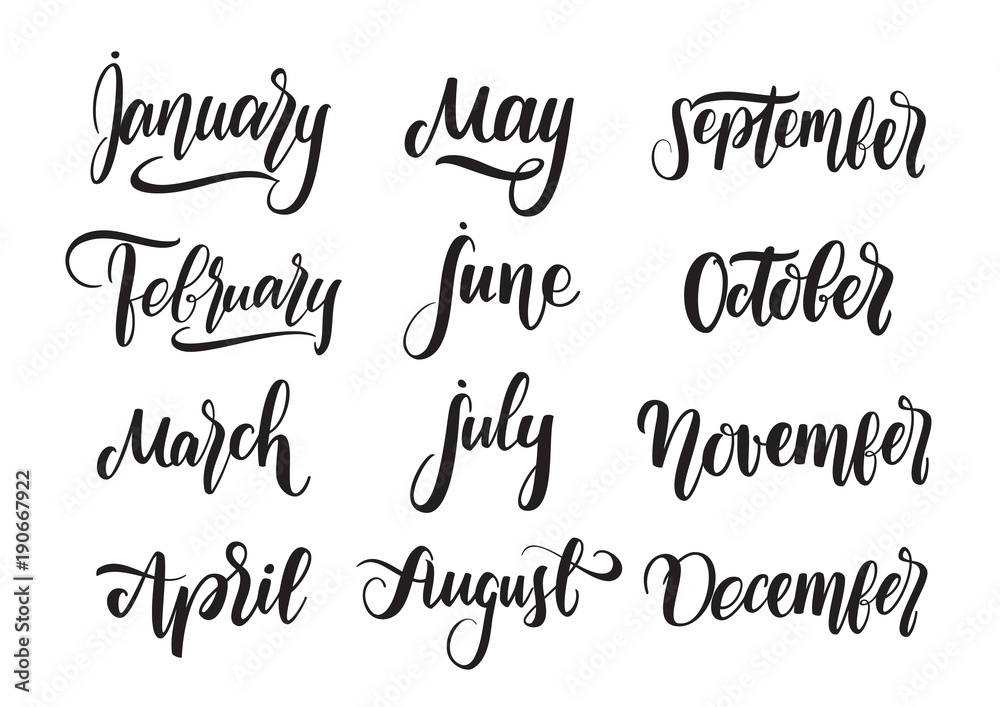 January
February
March
April
May
June
July
August
September
October
November
December
Adobe Stock | #190667922